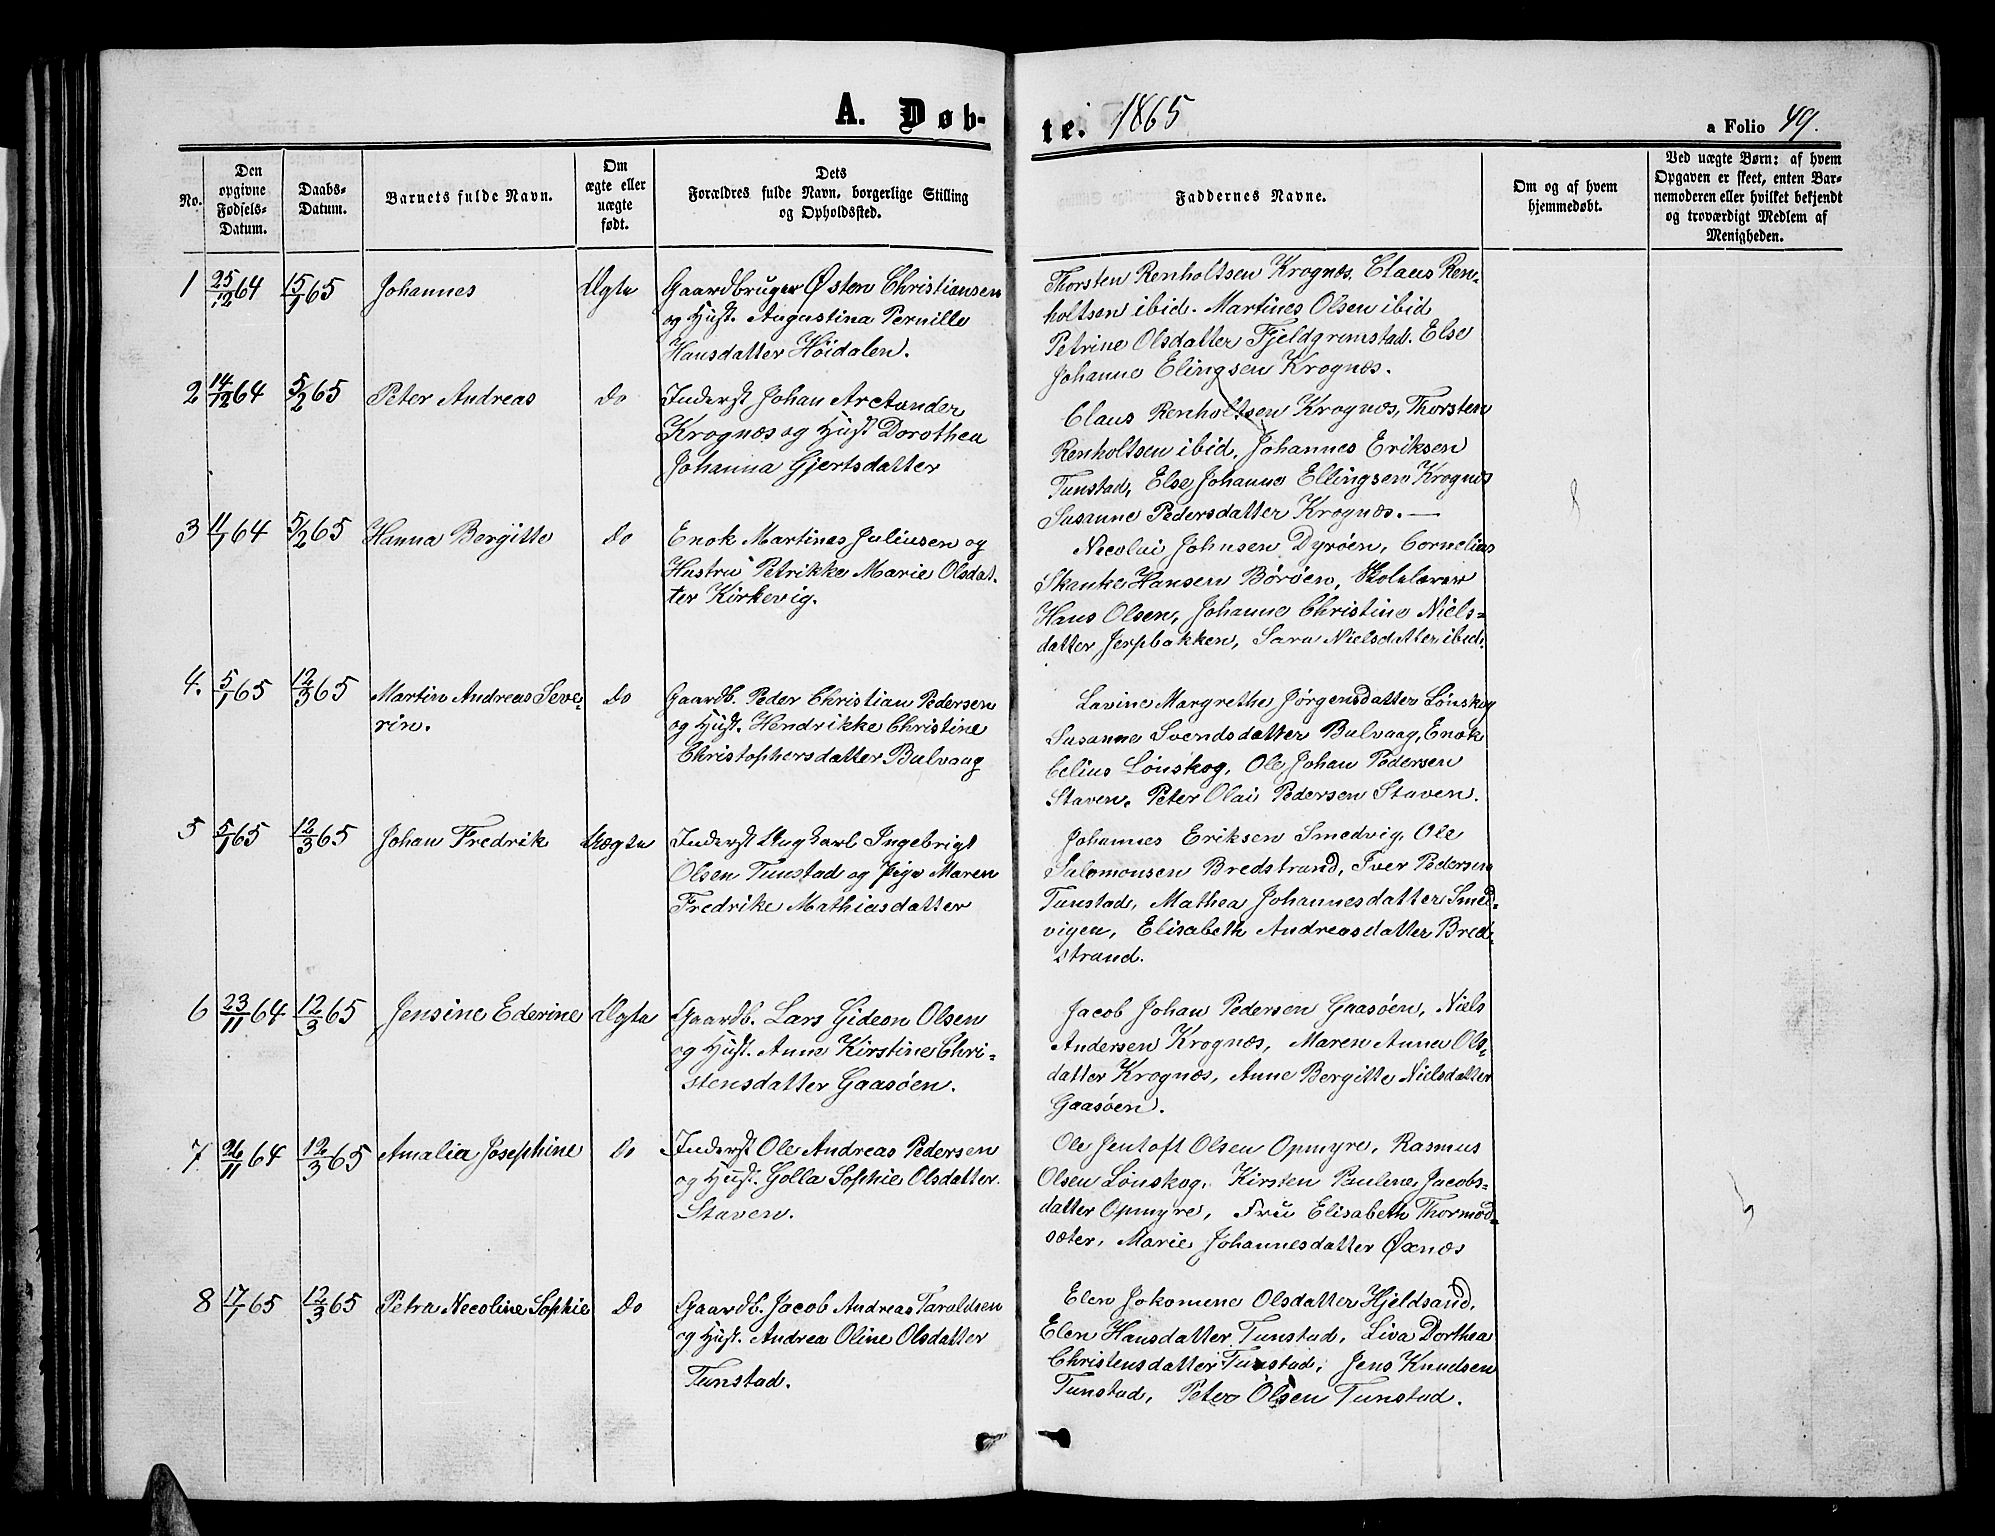 A. Døb-
te. 1865
a Folio 49.
No.
Den
opgivne
Fødsels-
Datum.
Daabs-
Datum.
Barnets fulde Navn.
Om
ægte eller
uægte
født.
Dets
Forældres fulde Navn, borgerlige Stilling
og Opholdssted.
Faddernes Navne.
Om og af hvem
hjemmedøbt.
Ved uægte Børn: af hvem
Opgaven er skeet, enten Bar-
nemoderen eller hvilket bekjendt
og troværdigt Medlem af
Menigheden.
1 25/12 64 15/1 65 Johannes Ægte
Gaardbruger Østen Christiansen
og Hust. Augustina Pernille
Hansdatter Höidalen.
Thorsten Renholtsen Krognæs. Claus Ren-
holtsen ibid. Martines Olsen ibid
Petrine Olsdatter Fjeldgrimstad. Else
Johanne Elingsen Krognæs.
2 14/12 64 5/2 65 Peter Andreas Do
Inderst Johan Arctander
Krognæs og Hust Dorothea
Johanna Gjertsdatter
Claus Renholtsen Krognæs, Thorsten
Renholtsen ibid, Johannes Eriksen
Tunstad, Else Johanne Ellingsen Krognæs
Susanne Pedersdatter Krognæs. —
3 11/1 64 5/2 65 Hanna Bergitte Do
Enok Martinas Juliusen og
Hustru Petrikke Marie Olsdat-
ter Kirkevig.
Necolai Johnsen Dyröen, Cornelius
Skanke Hansen Böröen, Skolelærer
Hans Olsen, Johanne Christine Niels-
datter Jerpbakken, Sara Nielsdatter ibid.
4. 5/1 65 12/3 65 Martin Andreas Seve-
rin. Do
Gaardb. Peder Christian Pedersen
og Hust. Hendrikke Christine
Christophersdatter Bulvaag
Lavine Margrethe Jörgensdatter Lönskog
Susanne Svendsdatter Bulvaag, Enok
Celius Lönskog, Ole Johan Pedersen
Staven, Peter Olai Pedersen Staven.
5 5/1 65 12/3 65 Johan Fredrik Uægte
Inderst Ungkarl Ingebrigt
Olsen Tunstad og Pige Maren
Fredrike Mathiasdatter
Johannes Eriksen Smedvig, Ole
Salomonsen Bredstrand, Iver Pedersen
Tunstad, Mathea Johannesdatter Smed-
vigen, Elisabeth Andreasdatter Bred-
strand.
6 23/11 64 12/3 65 Jensine Ederine Ægte
Gaardb. Lars Gideon Olsen
og Hust. Anne Kirstine Chri-
stensdatter Gaasöen.
Jacob Johan Pedersen Gaasöen, Niels
Andersen Krognæs, Maren Anna Ols-
datter Krognæs, Anne Bergitte Nielsdatter
Gaasöen.
7. 26/11 64 12/3 65 Amalia Josephine Do
Inderst Ole Andreas Pedersen
og Hust. Golla Sophie Olsdatter
Staven.
Ole Jentoft Olsen Opmyre, Rasmus
Olsen Lönskog, Kirsten Pauline Jacobs-
datter Opmyre, Fru Elisabeth Thormod-
sæter, Marie Johannesdatter Øxnæs
8 17/1 65 12/3 65 Petra Necoline Sophie Do
Gaardb. Jacob Andreas Taraldsen
og Hust. Andrea Oline Olsdatter
Tunstad.
Elen Jokomine Olsdatter Hjeldsand,
Elen Hansdatter Tunstad, Liva Dorthea
Christensdatter Tunstad, Jens Knudsen
Tunstad, Peter Olsen Tunstad.